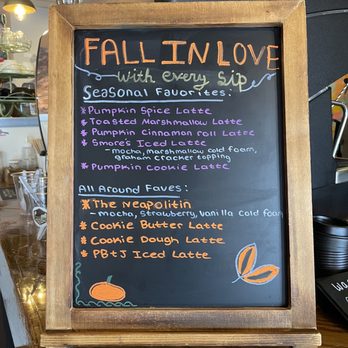 FALL IN LOVE
with every sip
Seasonal Favorites:
* Pumpkin Spice Latte
* Toasted Marshmallow Latte
* Pumpkin Cinnamon roll Latte
* Smore's Iced Latte
- mocha, marshmallow cold foam,
graham cracker topping
* Pumpkin Cookie Latte
All Around Faves:
* The Neapolitin
- mocha, strawberry, vanilla cold foam
* Cookie Butter Latte
* Cookie Dough Latte
* PB+J Iced Latte